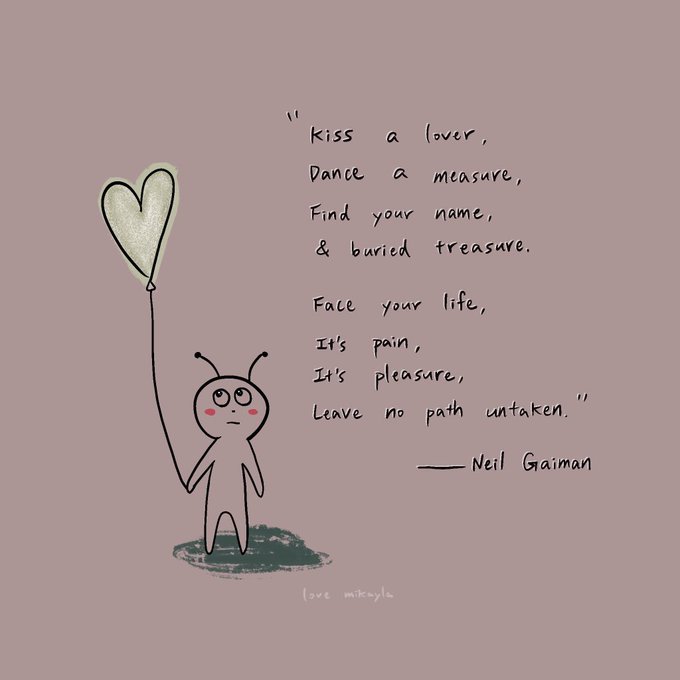 "Kiss a lover,
Dance a measure,
Find your name,
& buried treasure.
Face your life,
It's pain,
It's pleasure,
Leave no path untaken."
—Neil Gaiman
love mikayla